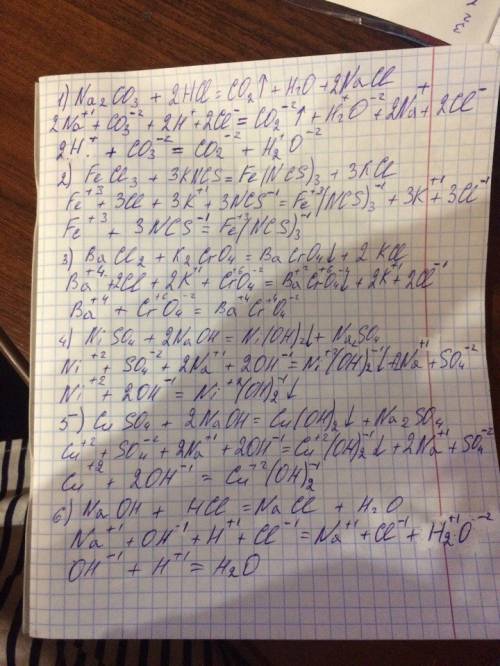 1) Na₂CO₃ + 2HCl = CO₂↑ + H₂O + 2NaCl
2Na⁺¹ + CO₃⁻² + 2H⁺ + 2Cl⁻ = CO₂⁻²↑ + H₂⁺O⁻² + 2Na⁺ + 2Cl⁻
2H⁺ + CO₃⁻² = CO₂⁻² + H₂⁺O⁻²
2) FeCl₃ + 3KNCS = Fe(NCS)₃ + 3KCl
Fe⁺³ + 3Cl + 3K⁺¹ + 3NCS⁻¹ = Fe⁺³(NCS)₃⁻¹ + 3K⁺¹ + 3Cl⁻¹
Fe⁺³ + 3NCS⁻¹ = Fe⁺³(NCS)₃⁻¹
3) BaCl₂ + K₂CrO₄ = BaCrO₄↓ + 2KCl
Ba⁺⁴ + 2Cl + 2K⁺¹ + Cr⁺⁶O₄⁻² = Ba⁺²Cr⁺⁶O₄⁻²↓ + 2K⁺¹ + 2Cl⁻¹
Ba⁺⁴ + Cr⁺⁶O₄⁻² = Ba⁺⁴Cr⁺⁴O₄⁻²
4) NiSO₄ + 2NaOH = Ni(OH)₂↓ + Na₂SO₄
Ni⁺² + SO₄⁻² + 2Na⁺¹ + 2OH⁻¹ = Ni⁺²(OH)₂⁻¹↓ + 2Na⁺¹ + SO₄⁻²
Ni⁺² + 2OH⁻¹ = Ni⁺²(OH)₂⁻¹↓
5) CuSO₄ + 2NaOH = Cu(OH)₂↓ + Na₂SO₄
Cu⁺² + SO₄⁻² + 2Na⁺¹ + 2OH⁻¹ = Cu⁺²(OH)₂⁻¹↓ + 2Na⁺¹ + SO₄⁻²
Cu⁺² + 2OH⁻¹ = Cu⁺²(OH)₂⁻¹
6) NaOH + HCl = NaCl + H₂O
Na⁺¹ + OH⁻¹ + H⁺¹ + Cl⁻¹ = Na⁺¹ + Cl⁻¹ + H₂⁺¹O⁻²
OH⁻¹ + H⁺¹ = H₂O